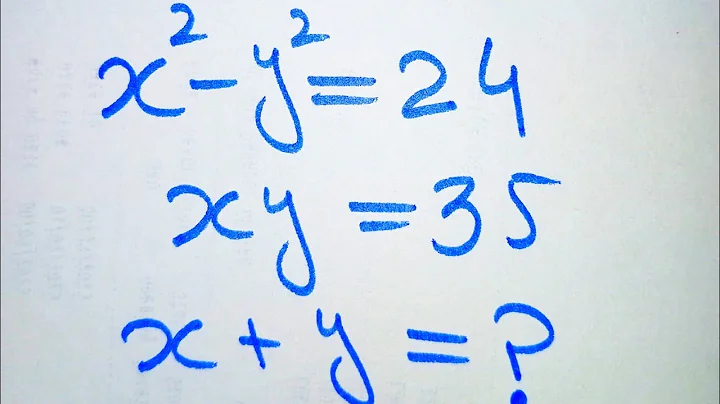 x² - y² = 24
xy = 35
x + y = ?